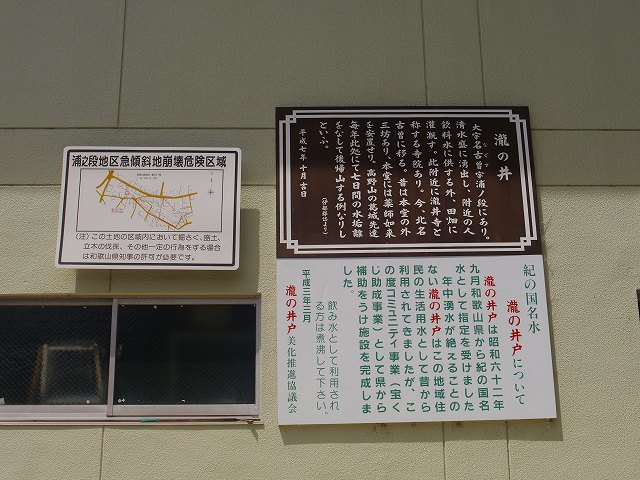 浦之段地区急傾斜地崩壊危険区域
(注) この土地の区域内において掘さく、盛土、
立木の伐採、その他一定の行為をする場合
は和歌山県知事の許可が必要です。
瀧の井
大字名古曽字浦ノ段にあり。
清水盛に湧出し、附近の人
飲料水に供する外、田畑に
灌漑す。此附近に瀧井寺と
称する寺院あり。今、北名
古曽に移る。昔は本堂の外
三坊あり、本堂には薬師如来
を安置せり。高野山の葛城先達
毎年此処にて七日間の水垢離
をなして後帰山する例なりし
といふ。
平成七年十月吉日
紀の国名水
瀧の井戸について
瀧の井戸は昭和六十二年
九月和歌山県から紀の国名
水として指定を受けました
年中湧水が絶えることの
ない瀧の井戸はこの地域住
民の生活用水として昔から
利用されてきましたが、こ
の度コミュニティ事業(宝く
じ助成事業)として県から
補助をうけ施設を完成しま
した。
飲み水として利用され
る方は煮沸して下さい。
平成三年三月
瀧の井戸美化推進協議会